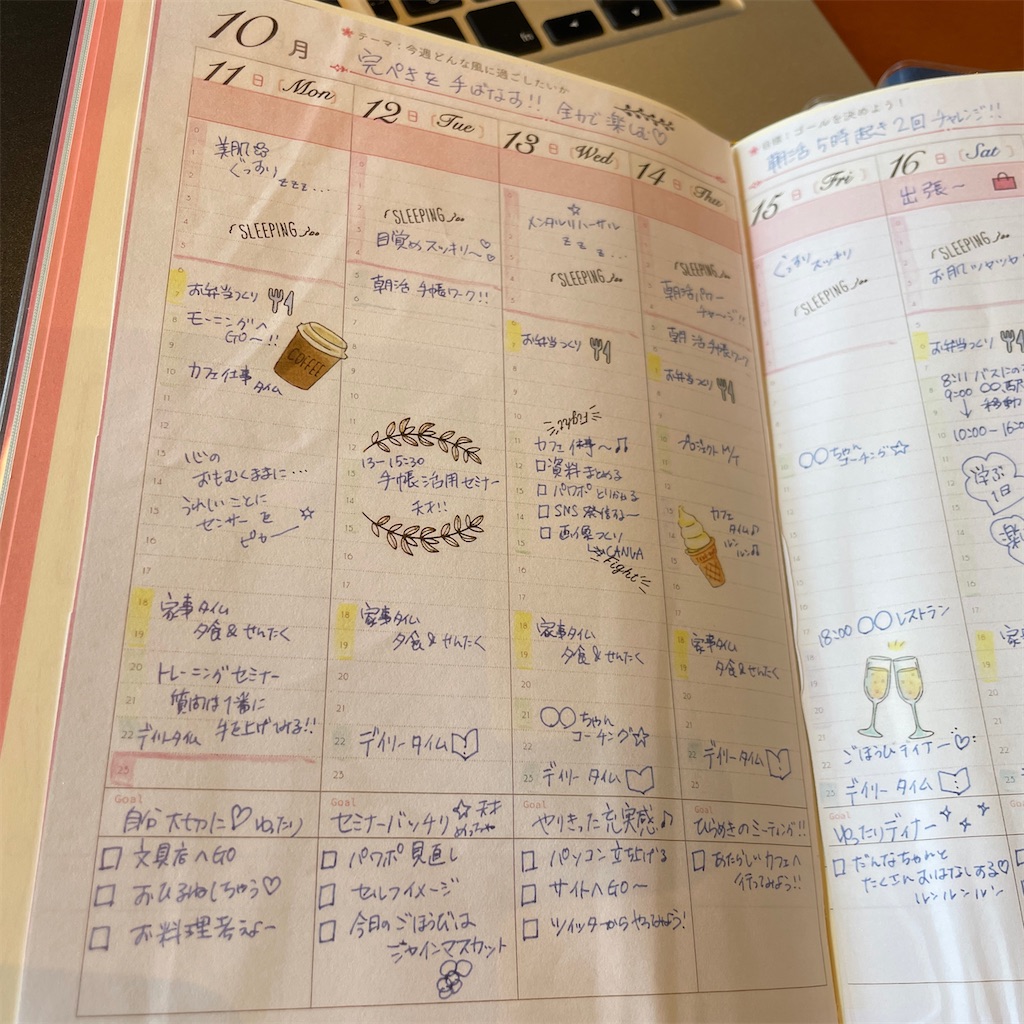 10月
テーマ：今週どんな風に過ごしたいか
完ぺきを手ばなす!! 全力で楽しむ♡
11日 (Mon)
美肌
ぐっすり
zzz...
SLEEPING
お弁当つくり
モーニングへ
GO〜!!
COFFEE
カフェ仕事
タイム
心の
おもむくままに…
うれしいことに
センサーを
ピカー
家事タイム
夕食&せんたく
トレーニングセミナー
質問は1番に
手を上げてみる!!
デイリータイム
Goal
自分大切に♡ゆったり
□ 文具店へGO
□ おひるねしちゃう♡
□ お料理考えよー
12日 (Tue)
SLEEPING
目覚めスッキリ〜♡
朝活 手帳ワーク!!
13-15:30
手帳活用セミナー
家事タイム
夕食&せんたく
デイリータイム
Goal
セミナーバッチリ☆
□ パワポ見直し
□ セルフイメージ
□ 今日のごほうびは
シャインマスカット
13日 (Wed)
☆
メンタルリハーサル
zzz...
SLEEPING
お弁当つくり
Fight
カフェ仕事〜♫
□資料まとめる
□パワポとりかかる
□SNS発信する〜
□画像つくり
↳CANVA
Fight
家事タイム
夕食&せんたく
○○ちゃん
コーチング☆
デイリータイム
Goal
やりきった充実感♪
□ パソコン立ち上げる
□ サイトへGO〜
□ ツイッターからやってみよう!
14日 (Thu)
SLEEPING
朝活パワー
チャージ!!
朝活 手帳ワーク
お弁当つくり
プロジェクトM/T
カフェ
タイム♪
ルン
ルン♫
家事タイム
夕食&せんたく
デイリータイム
Goal
ひらめきのミーティング!!
□ あたらしいカフェへ
行ってみよう!!
目標！ゴールを決めよう！
朝活5時起き2回チャレンジ!!
15日 (Fri)
ぐっすりスッキリ
SLEEPING
○○ちゃん
コーチング☆
18:00 ○○レストラン
ごほうびディナー♡
デイリータイム
Goal
ゆったりディナー
□ だんなちゃんと
たくさんおはなしする♡
ルンルンルン
16日 (Sat)
出張〜
SLEEPING
お肌ツヤツヤ
お弁当つくり
8:11 バスにの
9:00 ○○駅
↓移動
10:00-16:0
学ぶ
1日